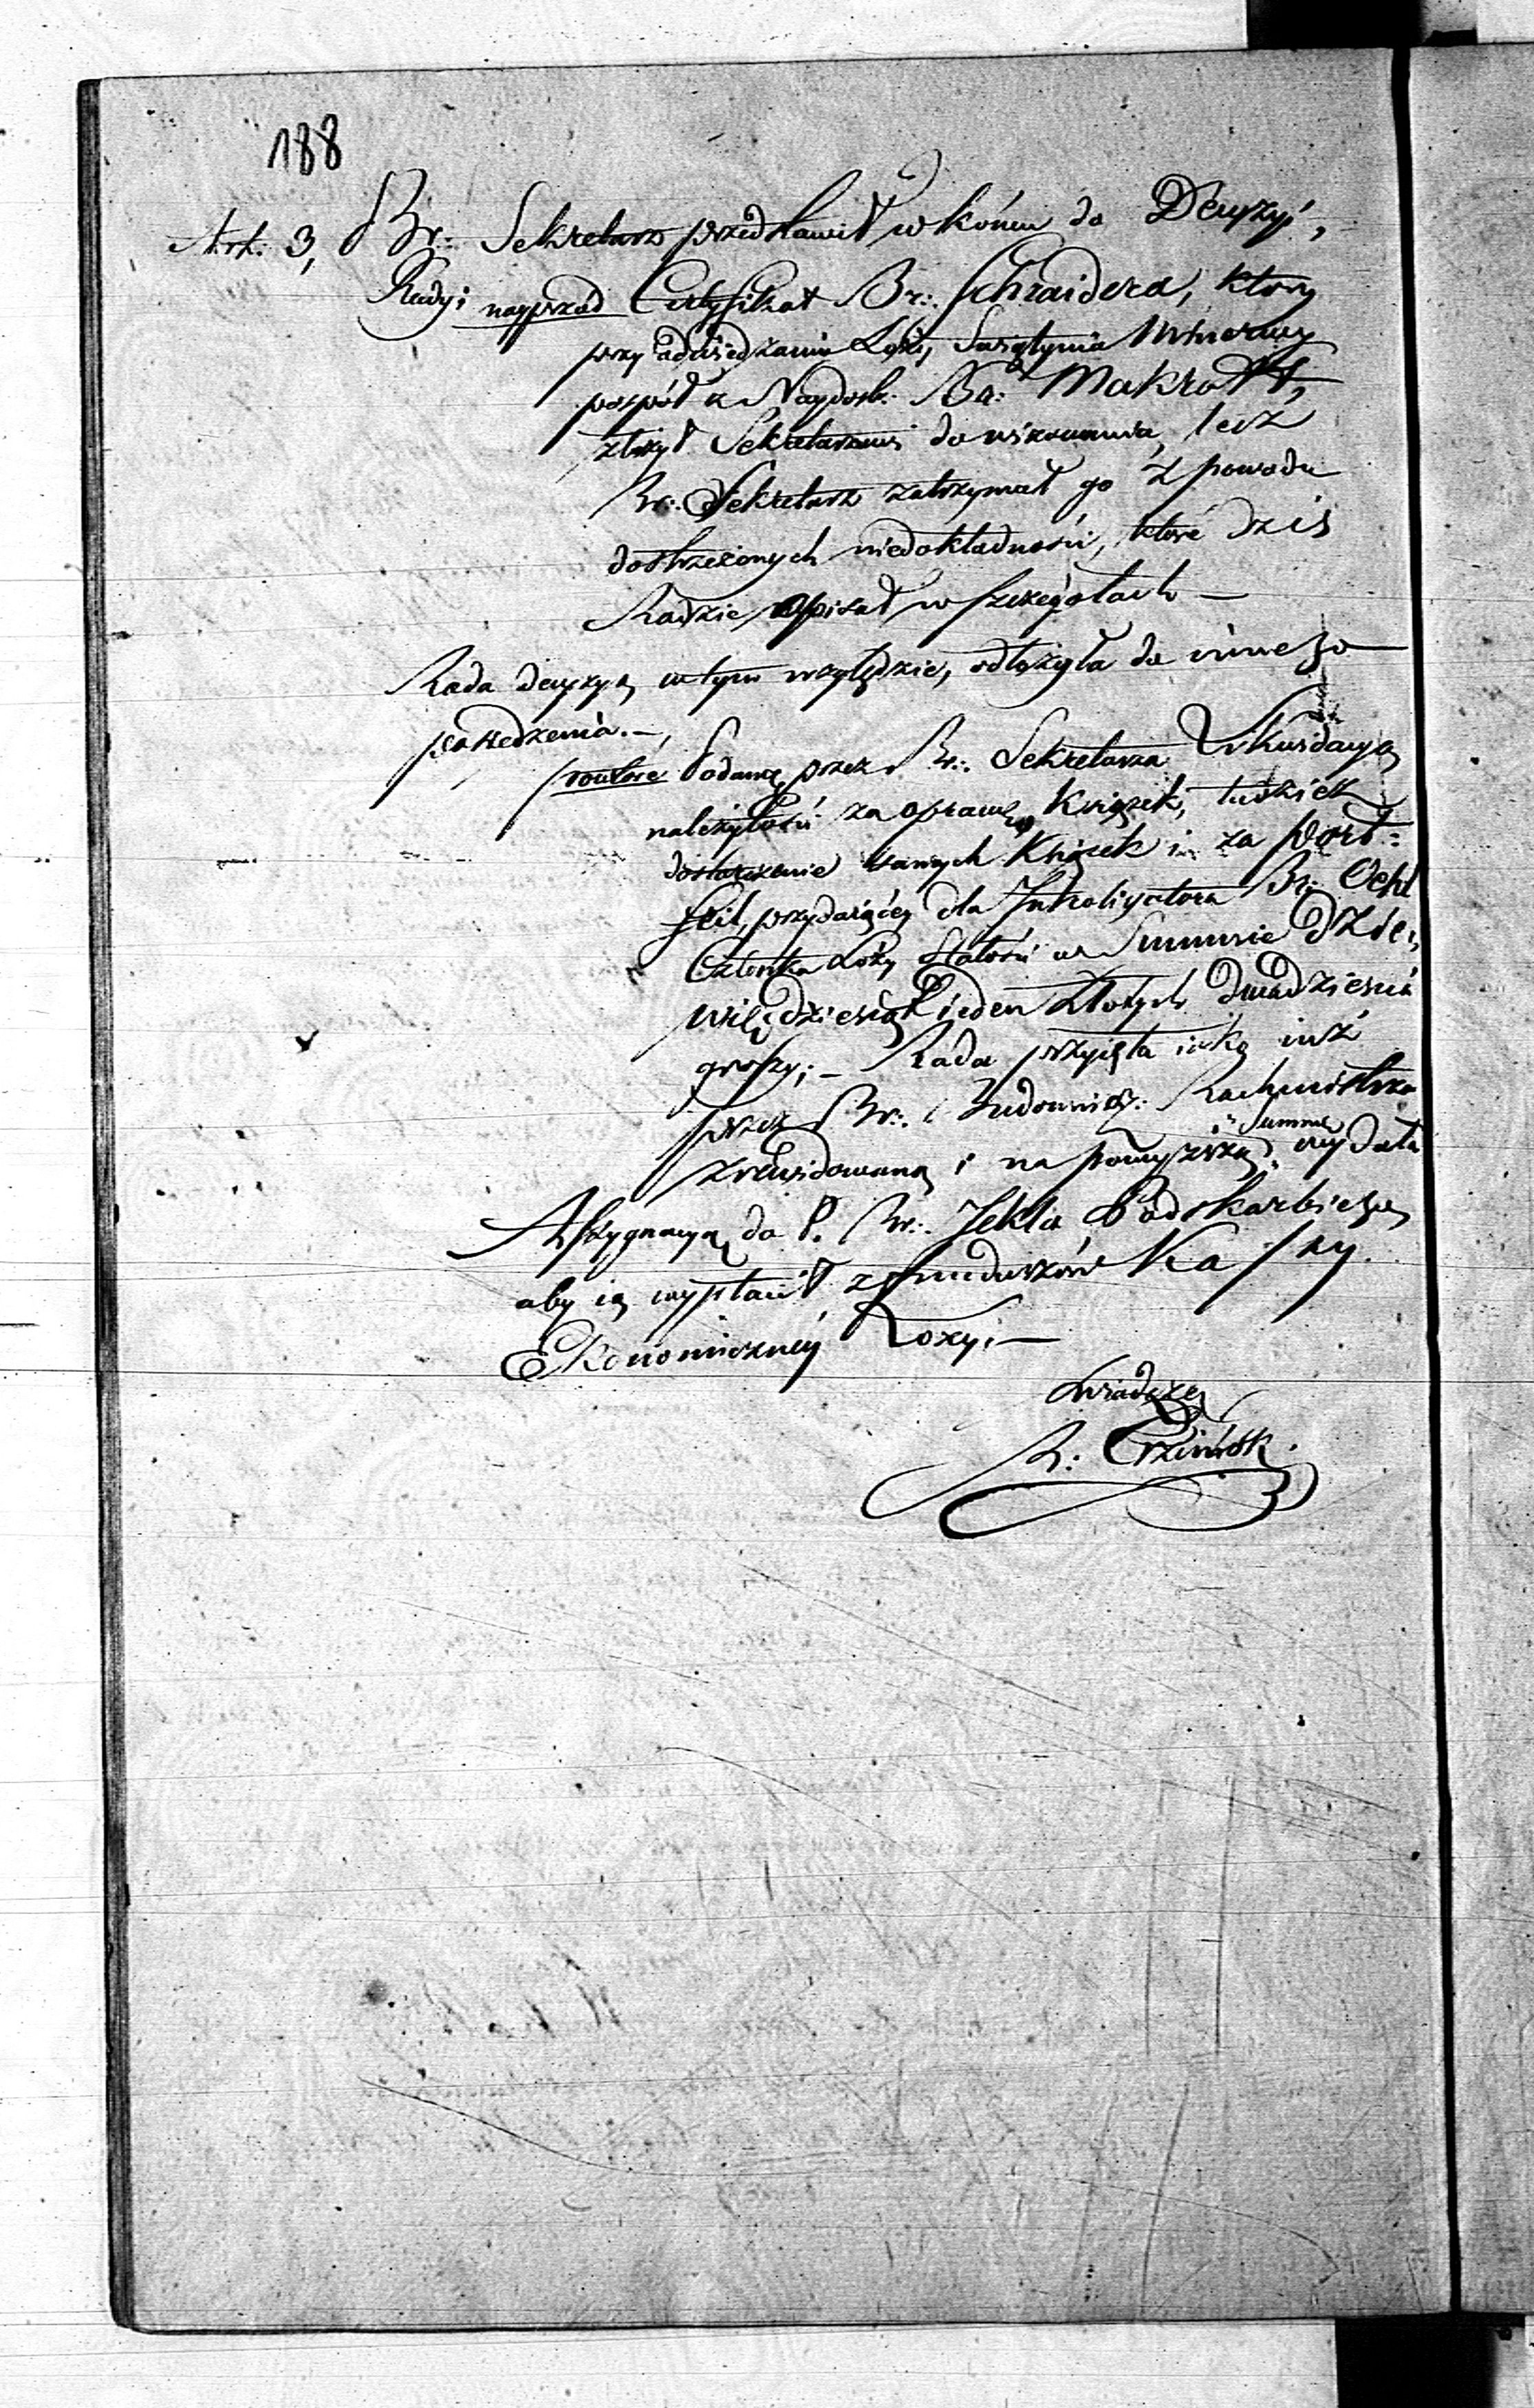 188
Art. 3, Br: Sekretarz przedstawił w końcu do Decyzyi,
Rady; nayprzod Certyfikat Br: Schraidera, ktory
przy odwiedzaniu Loży, Swiątynia Minerwy
pospół z Naydosk: Ba: Makrott,
złożył Sekretarzowi do wizowania, lecz
Br: Sekretarz zatrzymał go z powodu
dostrzeżonych niedokładnosci, które dzis
Radzie opisał w szczegółach —
Rada decyzyą w tym względzie, odłożyła do innego
posiedzenia. —,
powtóre Podaną przez Br: Sekretarza Likwidacyą
należytości za oprawę Książek, tudzież
dostarczenie samych Książek i za Port=
feil, przypadaiącey dla Introligatora Br: Oehl
Członka Loży Stałości w Summie dzie=
więdziesiąt ieden Złotych dwadziescia
groszy; — Rada przyięła iako iuż
przez Br: Budownicz: Rachmistrza
zrewidowaną i na powyższą Summę wydała
Assygnacyą do P. Br: Jekla Podskarbiego
aby ią wypłacił z funduszów Kassy
Ekonomiczney Loży. —
Swiadczę
R: